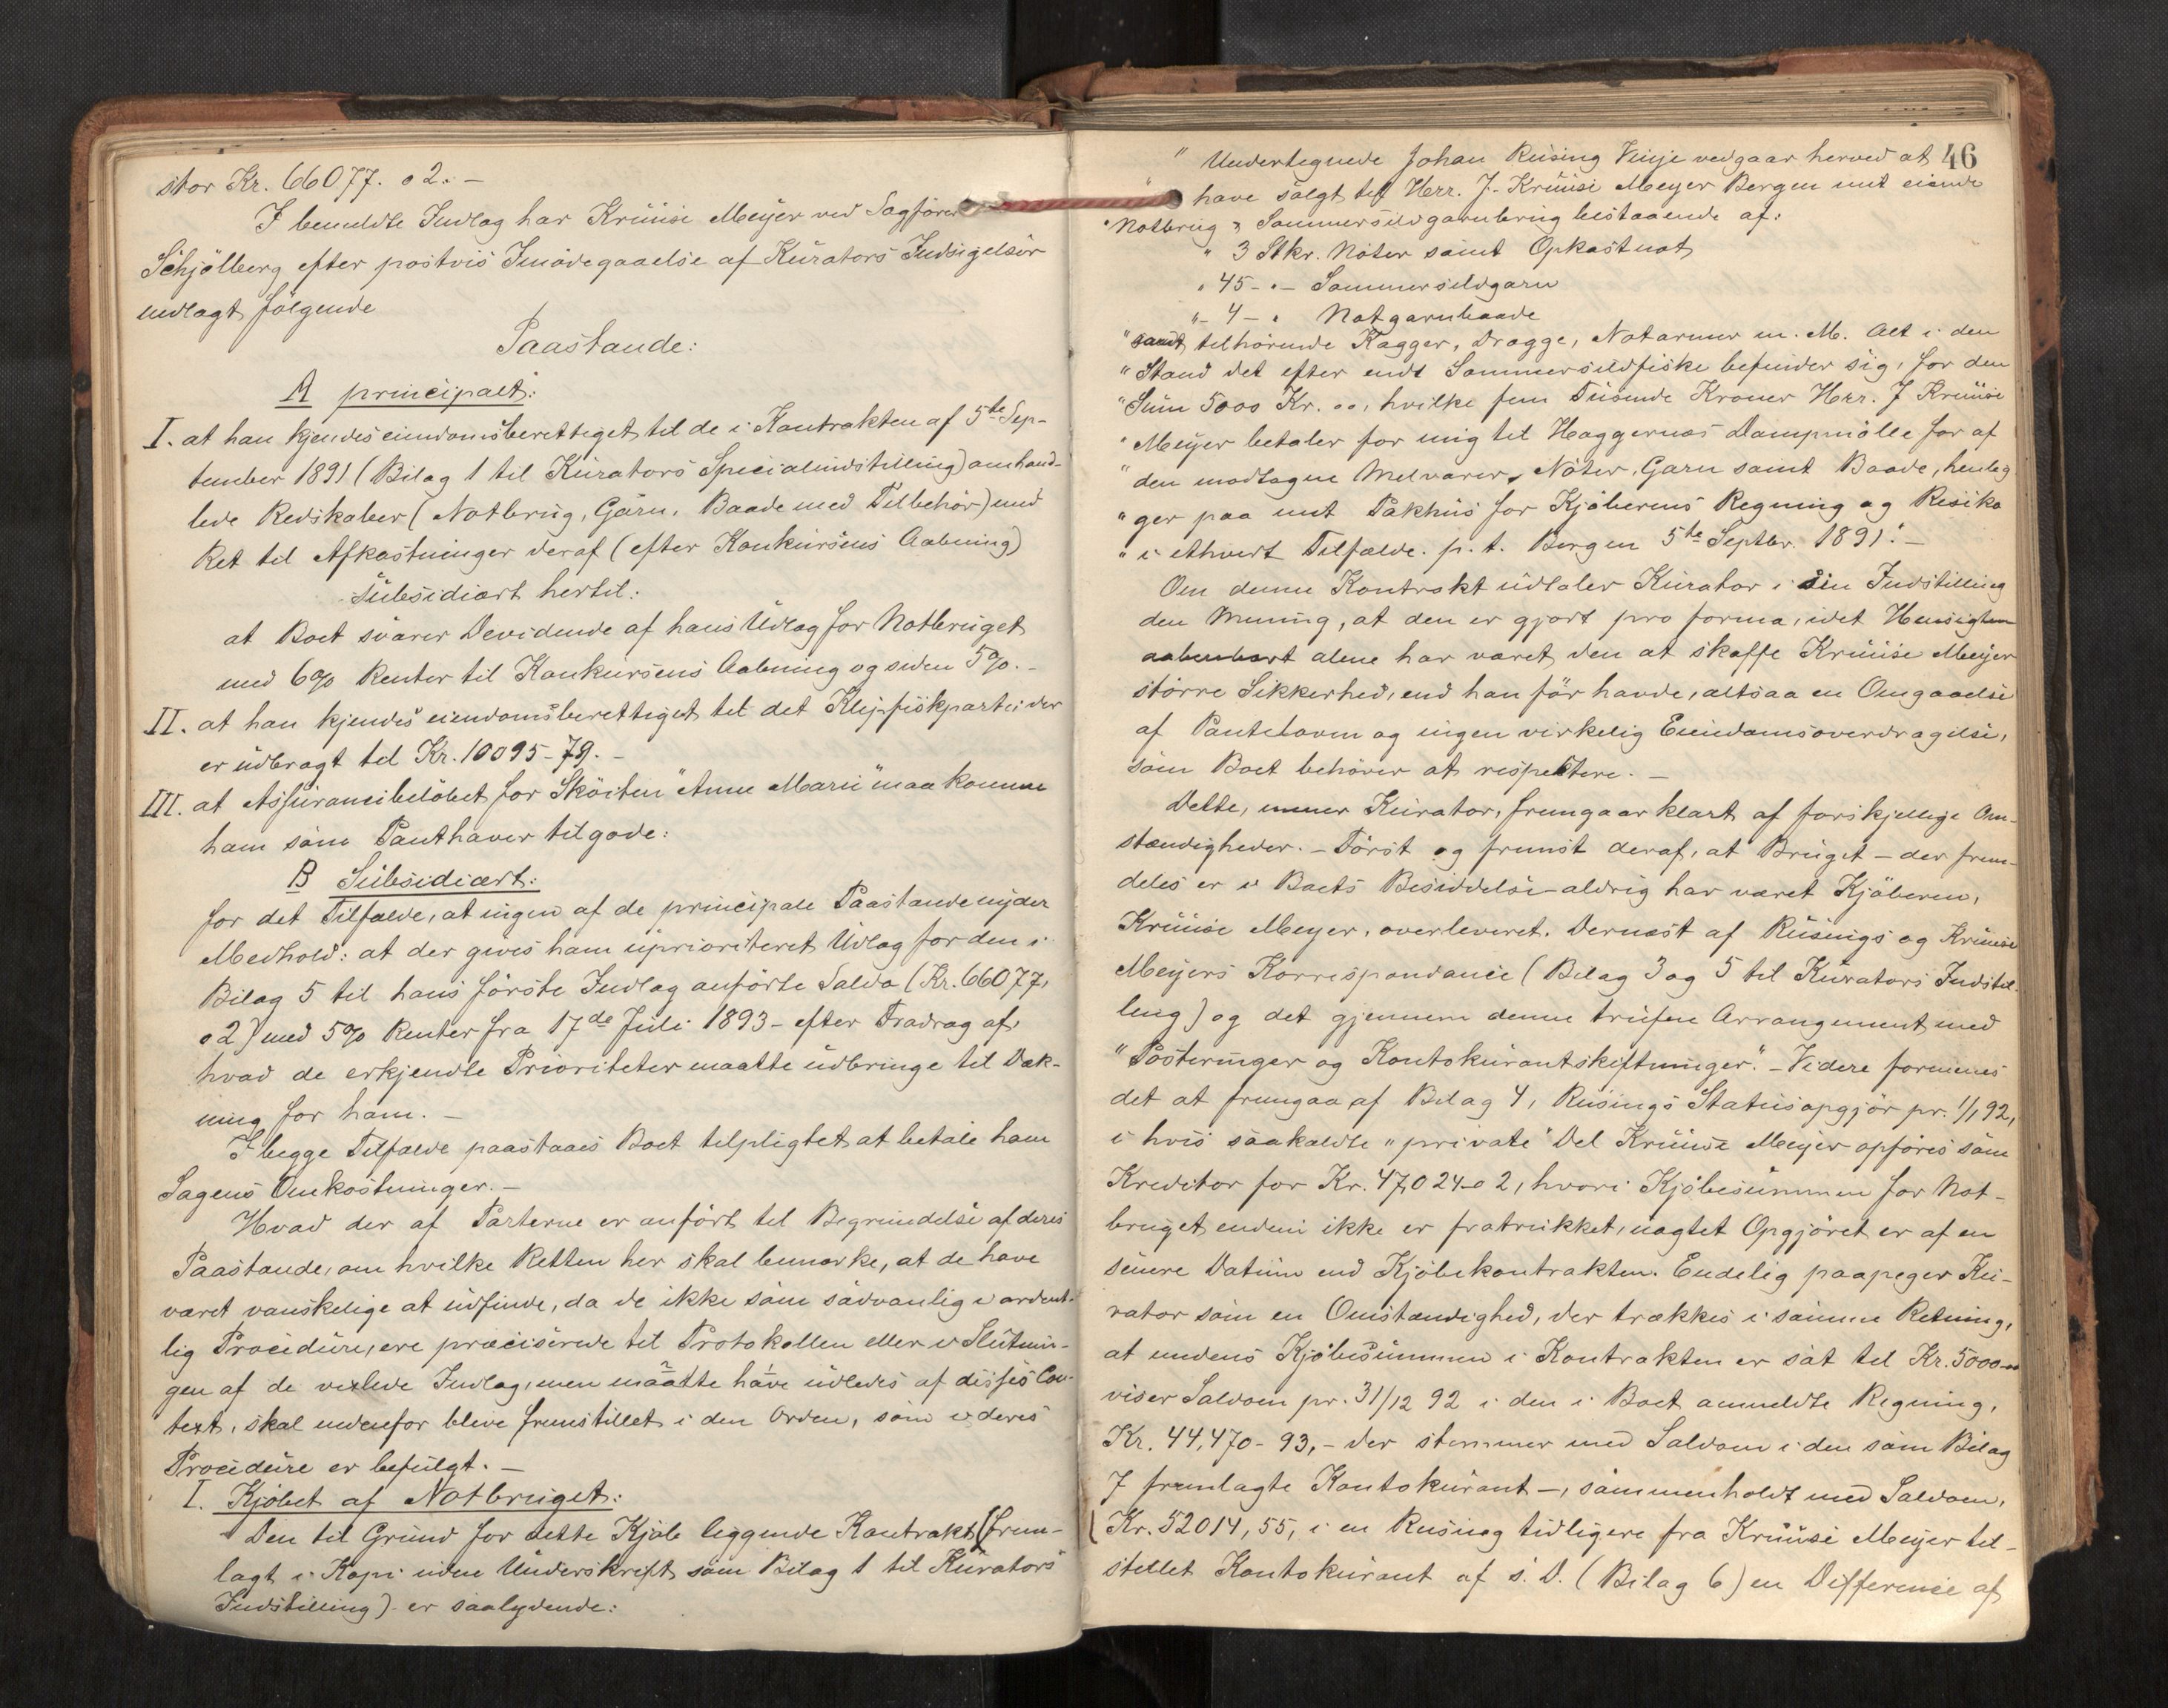 stor Kr. 66077.02.-
I bemeldte Indlæg har Krüüse Meyer ved Sagförer
Schjölberg efter postvis Imödegaaelse af Kurators Indsigelser
nedlagt fölgende
Paastande:
A principalt:
I. at han kjendes eiendomsberettiget til de i Kontrakten af 5te Sep-
tember 1891 (Bilag 1 til Kurators Specialindstilling) omhand-
lede Redskaber (Notbrug, Garn, Baade med Tilbehör) med
Ret til Afkastninger deraf (efter Konkursens Aabning)
Subsidiært hertil:
at Boet svarer Devidende af hans Udlæg for Notbruget
med 6% Renter til Konkursens Aabning og siden 5%.-
II. at han kjendes eiendomsberettiget til det Klipfiskparti der
er udbragt til Kr. 10095-79.-
III. at Assürancebelöbet for Sköiten "Anne Marie" maa komme
ham som Panthaver tilgode:
B Subsidiært:
for det Tilfælde, at ingen af de principale Paastande nyder
Medhold: at der gives ham uprioriteret Udlæg for den i
Bilag 5 til hans förste Indlæg anförte Saldo (Kr. 66077,
02) med 5% Renter fra 17de Juli 1893 - efter Fradrag af,
hvad de erkjendte Prioriteter maatte udbringe til Dæk-
ning for ham. -
I begge Tilfælde paastaaes Boet tilpligtet at betale ham
Sagens Omkostninger. -
Hvad der af Parterne er anfört til Begrundelse af deres
Paastande, om hvilke Retten her skal bemærke, at de have
været vanskelige at udfinde, da de ikke som sædvanlig i ordent-
lig Procedure, ere præciserede til Protokollen eller i Slutnin-
gen af de vexlede Indlæg, men maatte have udledes af disses Con-
text, skal nedenfor blive fremstillet i den Orden, som i deres
Procedure er befulgt. -
I. Kjöbet af Notbruget:
Den til Grund for dette Kjöb liggende Kontrakt (frem-
lagt i Kopi uden Underskrift som Bilag 1 til Kurators
Indstilling) er saalydende:
46
" Undertegnede Johan Rusing Vinje vedgaar herved at
" have solgt til Herr. J. Krüüse Meyer Bergen mit eiende
"Notbrug & Sommersildgarnbrug bestaaende af:
" 3 Stkr. Nöter samt Opkastnot
" 45 - " - Sommersildgarn
" - 4 - " Notgarnbaade
"samt tilhörende Kagger, Dragge, Notarmer m. M. Alt i den
"Stand det efter endt Sommersildfiske befinder sig, for den
"Sum 5000 Kr. 00, hvilke fem Tusende Kroner Herr. J Krüüse
"Meyer betaler for mig til Haggernæs Dampmölle for af
"den modtagne Melvarer, Nöter, Garn samt Baade, henlig
"ger paa mit Pakhus for Kjöberens Regning og Risiko
"i ethvert Tilfælde. p. t. Bergen 5te Septbr. 1891." -
Om denne Kontrakt udtaler Kurator i sin Indstilling
den Mening, at den er gjort pro forma, idet Hensigten
aabenbart alene har været den at skaffe Krüüse Meyer
större Sikkerhed, end han för havde, altsaa en Omgaaelse
af Panteloven og ingen virkelig Eiendomsoverdragelse,
som Boet behöver at respektere. -
Dette, mener Kurator, fremgaar klart af forskjellige Om-
stændigheder. - Först og fremst deraf, at Bruget - der frem-
deles er i Boets Besiddelse - aldrig har været Kjöberen,
Krüüse Meyer, overleveret. Dernæst af Rusings og Krüüse
Meyers Korrespondance (Bilag 3 og 5 til Kurators Indstil-
ling) og det gjennem denne trufne Arrangement med
"Posteringer og Kontokurantskiftninger". - Videre formenes
det at fremgaa af Bilag 4, Rusings Statusopgjör pr. 1/1 92,
i hvis saakaldte "private" Del Krüüse Meyer opföres som
Kreditor for Kr. 47,024-02, hvori Kjöbesummen for Not-
bruget endnu ikke er fratrukket, uagtet Opgjöret er af en
senere Datum end Kjöbekontrakten. Endelig paapeger Ku-
rator som en Omstændighed, der trækkes i samme Retning,
at medens Kjöbesummen i Kontrakten er sat til Kr. 5000-00
viser Saldoen pr. 31/12 92 i den i Boet anmeldte Regning,
Kr. 44,470-93, - der stemmer med Saldoen i den som Bilag
7 fremlagte Kontokurant -, sammenholdt med Saldoen,
Kr. 52014,55, i en Rusing tidligere fra Krüüse Meyer til-
stillet Kontokurant af s. D. (Bilag 6) en Difference af